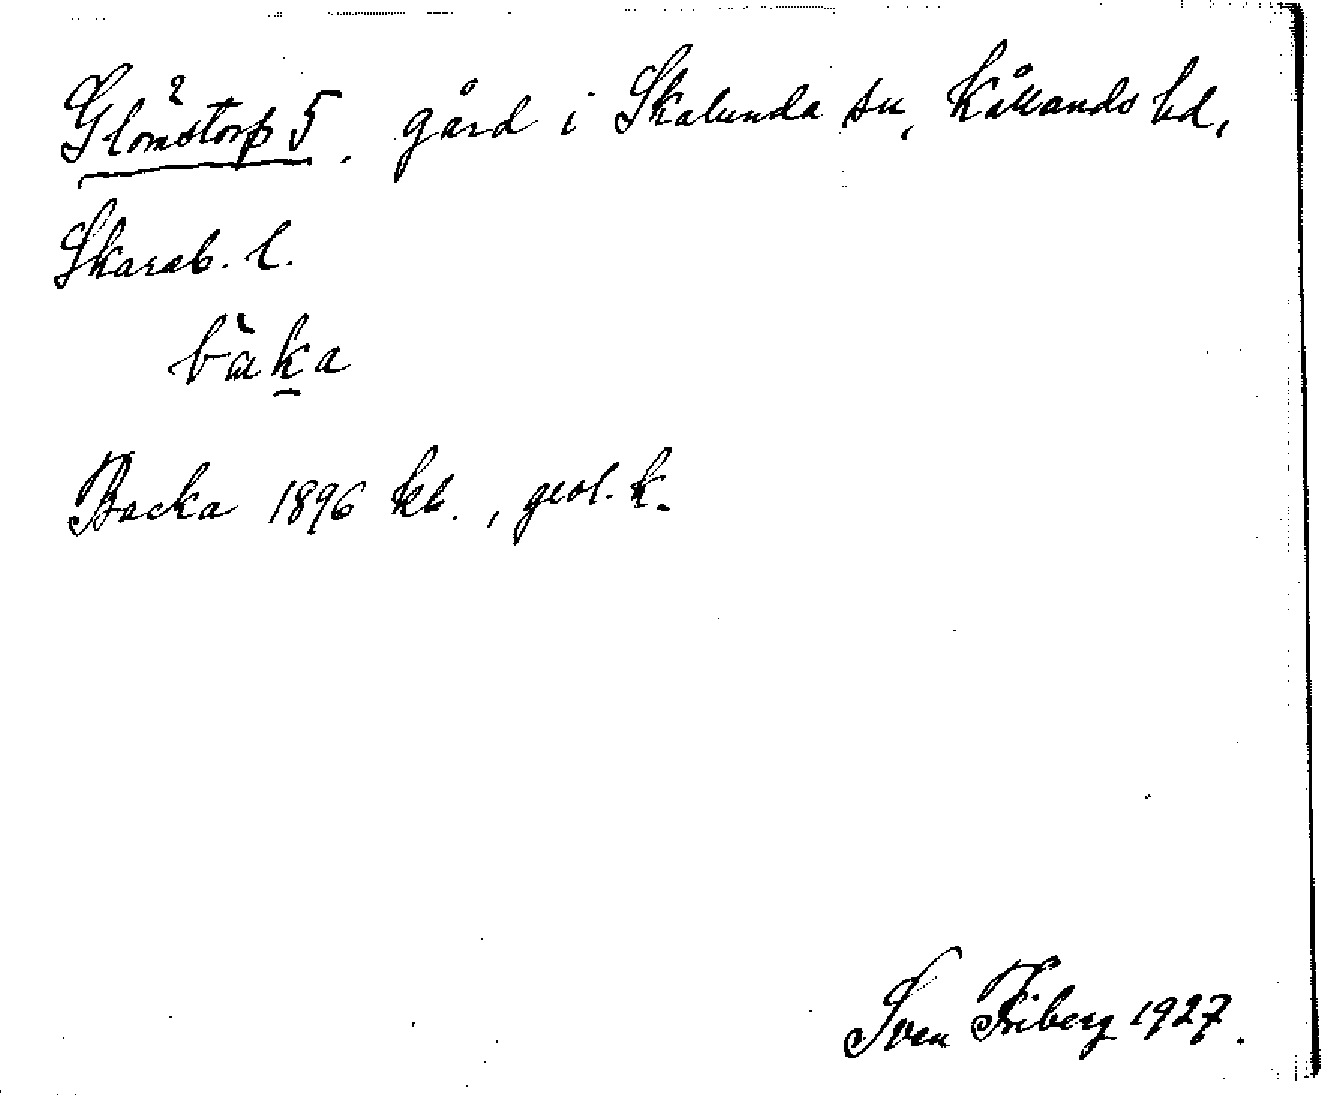 Glomstorp 5, gård i Skalunda sn, Kållands hd,
Skarab. l.
bàka
Backa 1896 kb., geol. k.
Sven Friberg 1927.